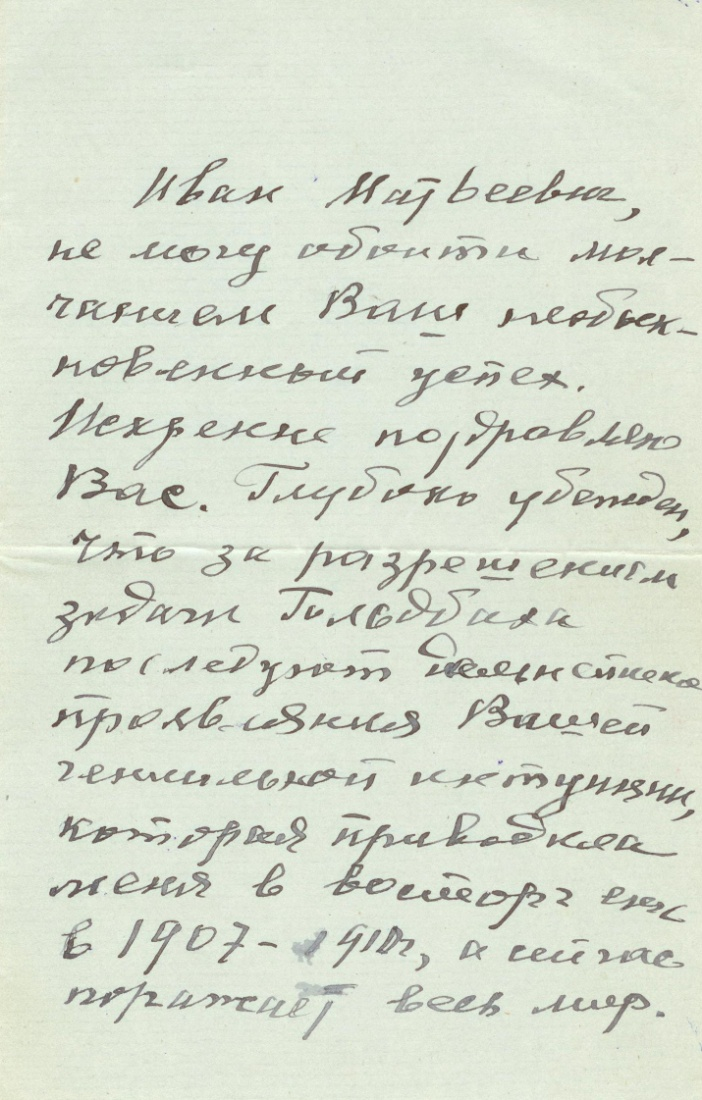 Иван Матвеевич,
не могу обойти мол-
чанием Ваш необык-
новенный успех.
Искренне поздравляю
Вас. Глубоко убежден,
что за разрешением
задачи Гольдбаха
последуют дальнейшие
проявления Вашей
гениальной интуиции,
которая приводила
меня в восторг еще
в 1907-1910гг, а сейчас
поражает весь мир.